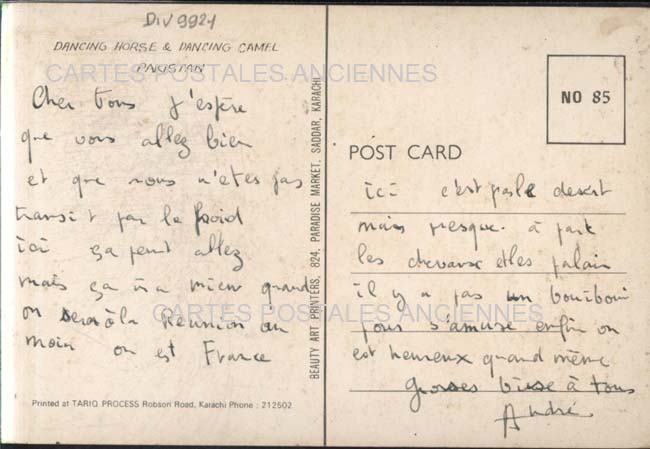 DIV 9924
DANCING HORSE & DANCING CAMEL
PAKISTAN
CARTES POSTALES ANCIENNES
Cher tous j'espère
que vous allez bien
et que vous n'etes pas
transit par le froid
ici ça peut allez
mais ça ira mieu quand
on sera à la Réunion au
moin on est France
Printed at TARIQ PROCESS Robson Road, Karachi Phone : 212502
BEAUTY ART PRINTERS, 824, PARADISE MARKET, SADDAR, KARACHI
NO 85
POST CARD
ici c'est pas le desert
mais presque à part
les chevaux et les
il y a pas un
pour s'amuse enfin on
est heureux quand même
Grosses bise à tous
André
CARTES POSTALES ANCIENNES